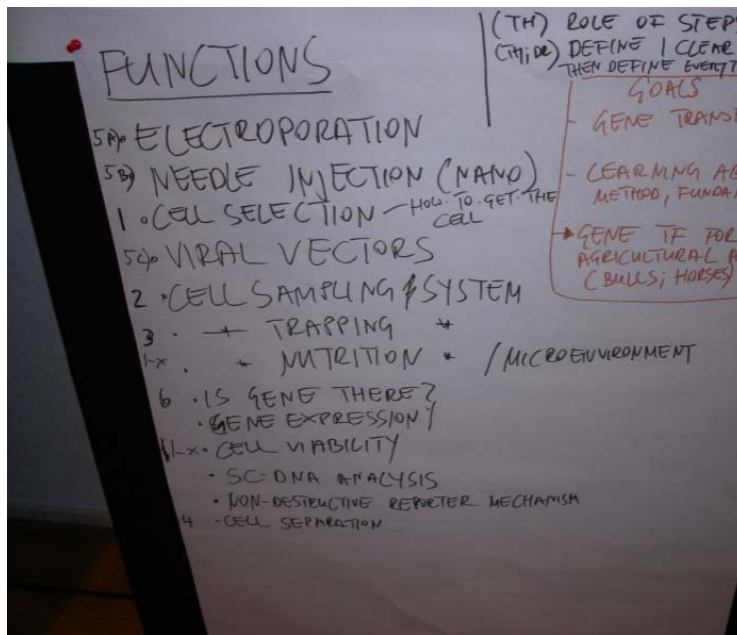 FUNCTIONS
5A). ELECTROPORATION
5B) NEEDLE INJECTION (NANO)
1 . CELL SELECTION – HOW TO GET THE
CELL
5C). VIRAL VECTORS
2 . CELL SAMPLING / SYSTEM
3 . TRAPPING
1-X . NUTRITION / MICROENVIRONMENT
6 . IS GENE THERE?
. GENE EXPRESSION?
1-X . CELL VIABILITY
. SC-DNA ANALYSIS
. NON-DESTRUCTIVE REPORTER MECHANISM
4 . CELL SEPARATION
(TH) ROLE OF STEPS
DEFINE 1 CLEAR
THEN DEFINE
GOALS
- GENE
- LEARNING
METHOD,
GENE TF FOR
AGRICULTURAL
(BULLS; HORSES)